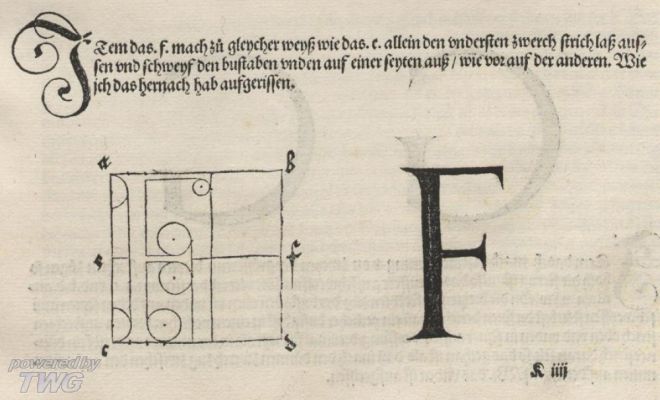 Item das. f. mach zů gleycher weyß wie das. e. allein den vndersten zwerch strich laß aus-
sen vnd schweyf den bustaben vnden auf einer seyten auß / wie vor auf der anderen. Wie
jch das hernach hab aufgerissen.
a b
e f
c d
F
K iiij
powered by
TWG